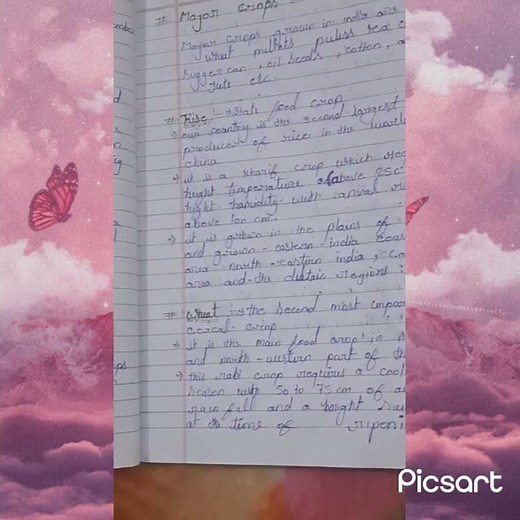 # Major crops
Major crops grown in india are
what millets pulses tea c
sugger can, oil seeds, cotton, a
Jute etc.
# Rise :→ state food crop
→ our country is the second largest
producer of rice in the world
china
→ it is a kharif crop which req
height temperature above 25c
hight humidity with
above 100 cm.
→ it is grown in the plains of
and grown-eastern india coas
area north-eastern india, co
area and the deltaic regions
# what :→ the second most impor
cereal-crop
→ it is the main food crop in
and north-western part of th
→ this rabi crop requires a cool
season with 50 to 75 cm of
rain fall and a bright
at the time of ripeni
Picsart